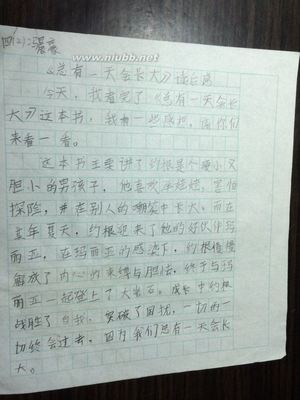 四(2):
www.niubb.net
《总有一天会长大》读后感
今天,我看完了《总有一天会长
大》这本书,我有一些感想,请你们
来看一看。
这本书主要讲了约根是个瘦小又
胆小的男孩子,他喜欢洋娃娃,害怕
探险,并在别人的嘲笑中长大。而在
去年夏天,约根迎来了他的好伙伴玛
丽亚,在玛丽亚的感染下,约根慢慢
解放了内心的束缚与胆怯,终于与玛
丽亚一起登上了大岩石。成长中约根
战胜了自我,突破了困扰,一切的一
切终会过去,因为我们总有一天会长
大。